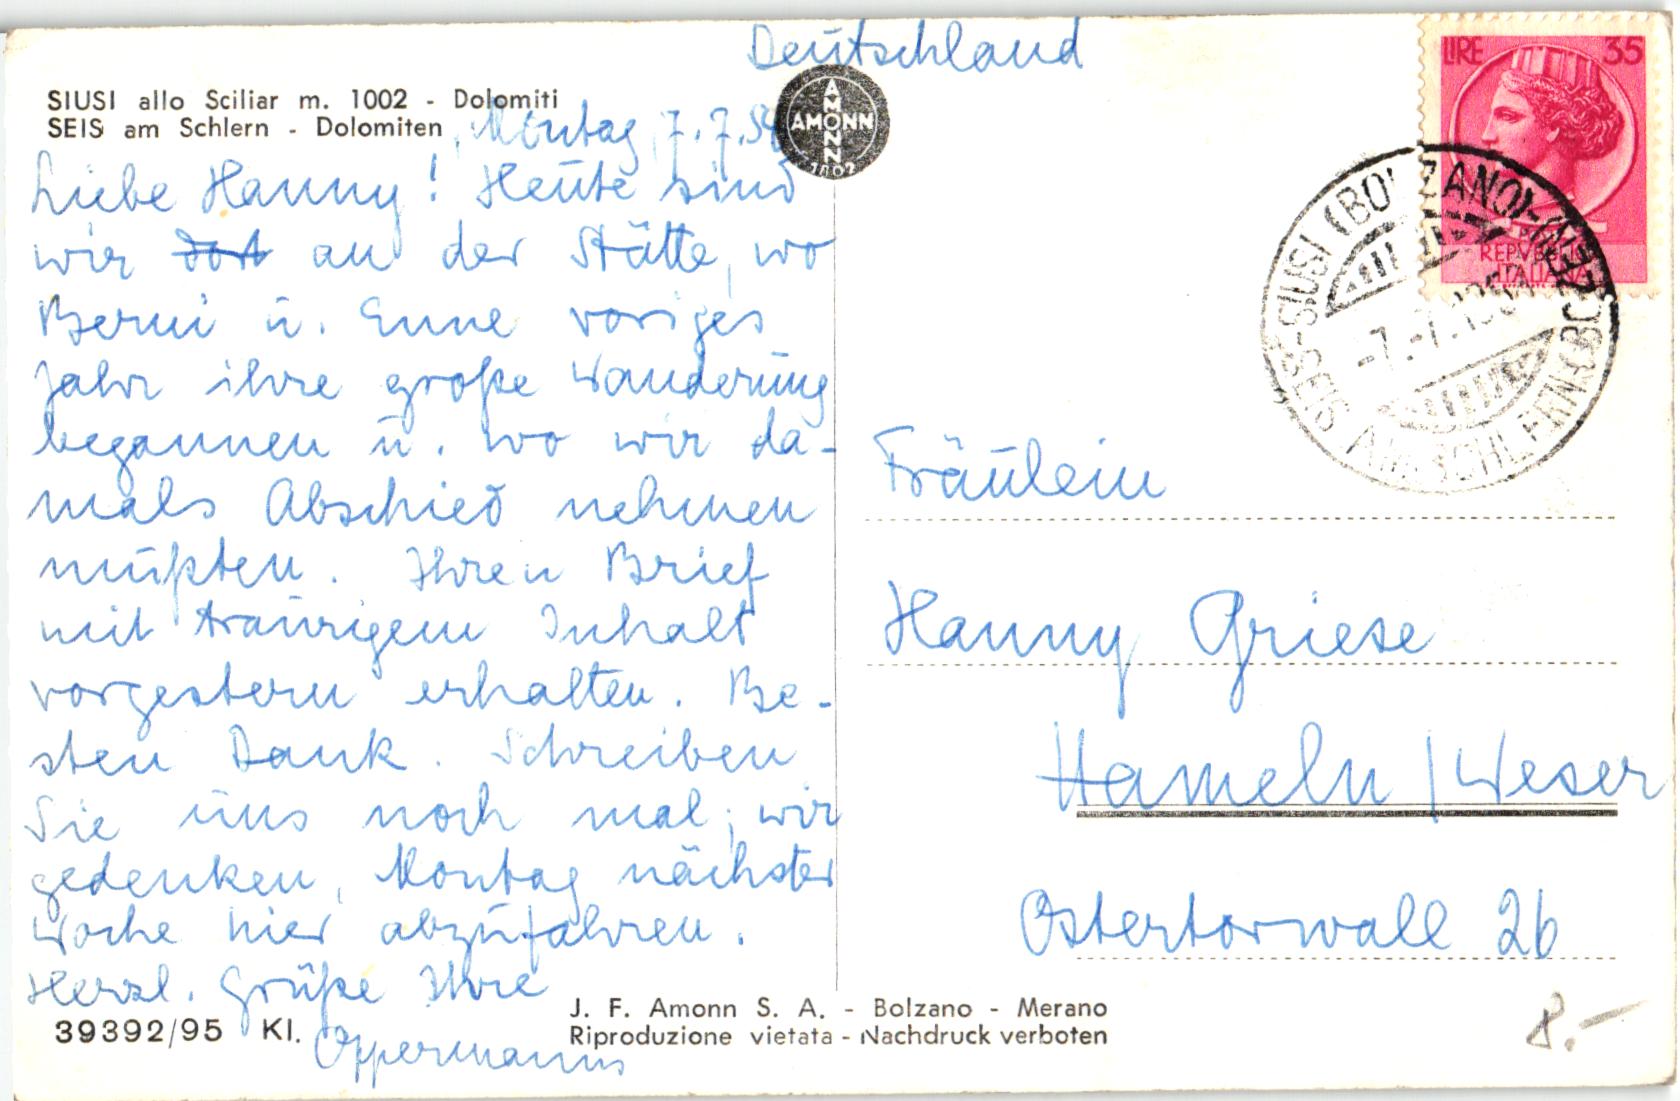 Deutschland
SIUSI allo Sciliar m. 1002 - Dolomiti
SEIS am Schlern - Dolomiten
AMONN
AMONN
1802
Montag, 7.7.
Liebe Hanny! Heute sind
wir dort an der Stätte, wo
Berni u. Enne voriges
Jahr ihre große Wanderung
begannen u. wo wir da-
mals Abschied nehmen
mußten. Ihren Brief
mit traurigem Inhalt
vorgestern erhalten. Be-
sten Dank. Schreiben
Sie uns noch mal; wir
gedenken, Montag nächster
Woche hier abzufahren.
Herzl. Grüße Ihre
Oppermanns
39392/95 Kl.
J. F. Amonn S. A. - Bolzano - Merano
Riproduzione vietata - Nachdruck verboten
LIRE 35
REPVBBLICA
ITALIANA
SIUSI (BOLZANO)
SEIS AM SCHLERN (BOZEN)
-7.-7.
Fräulein
Hanny Griese
Hameln / Weser
Ostertorwall 26
8.-